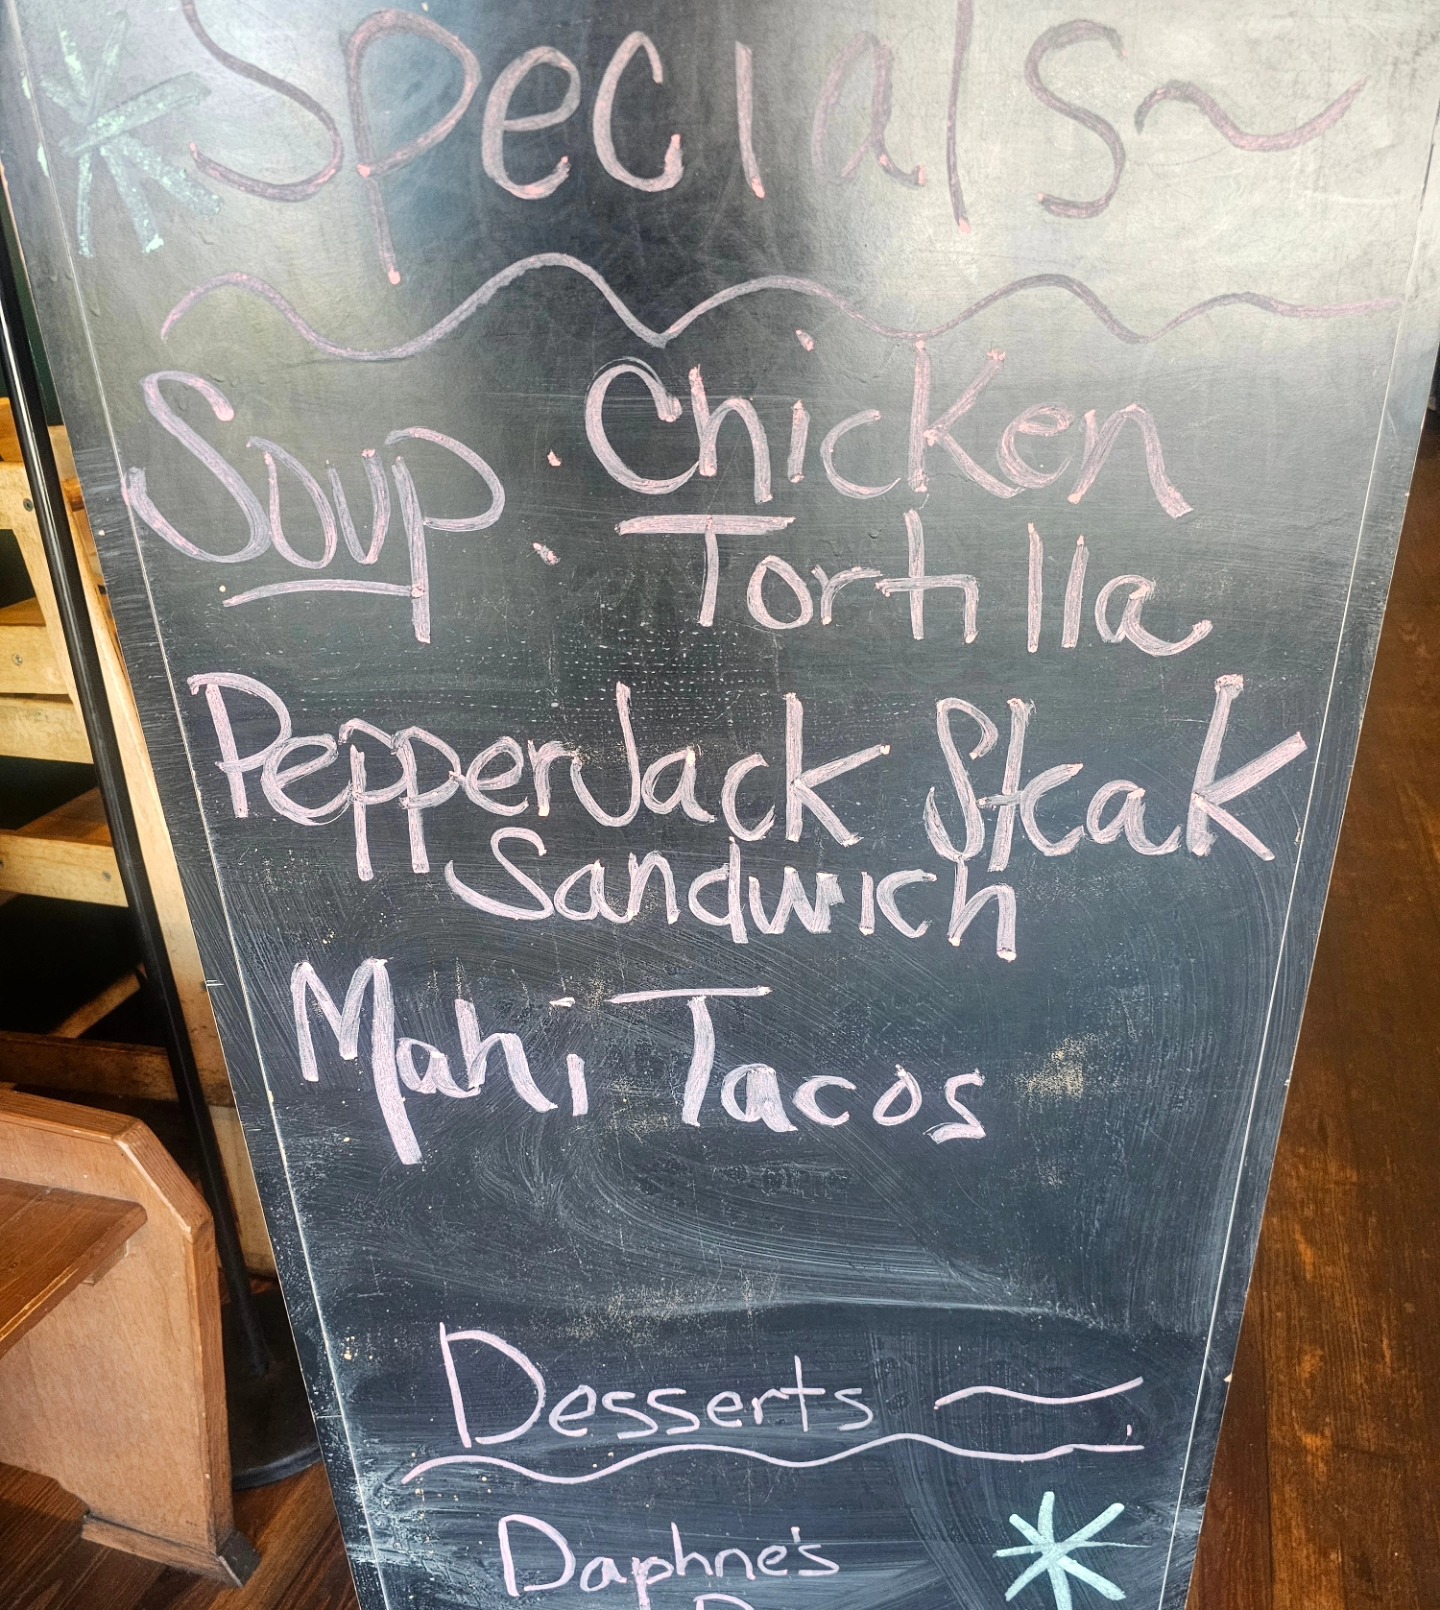 Specials~
Soup: Chicken
Tortilla
PepperJack Steak
Sandwich
Mahi Tacos
Desserts ~
Daphne's